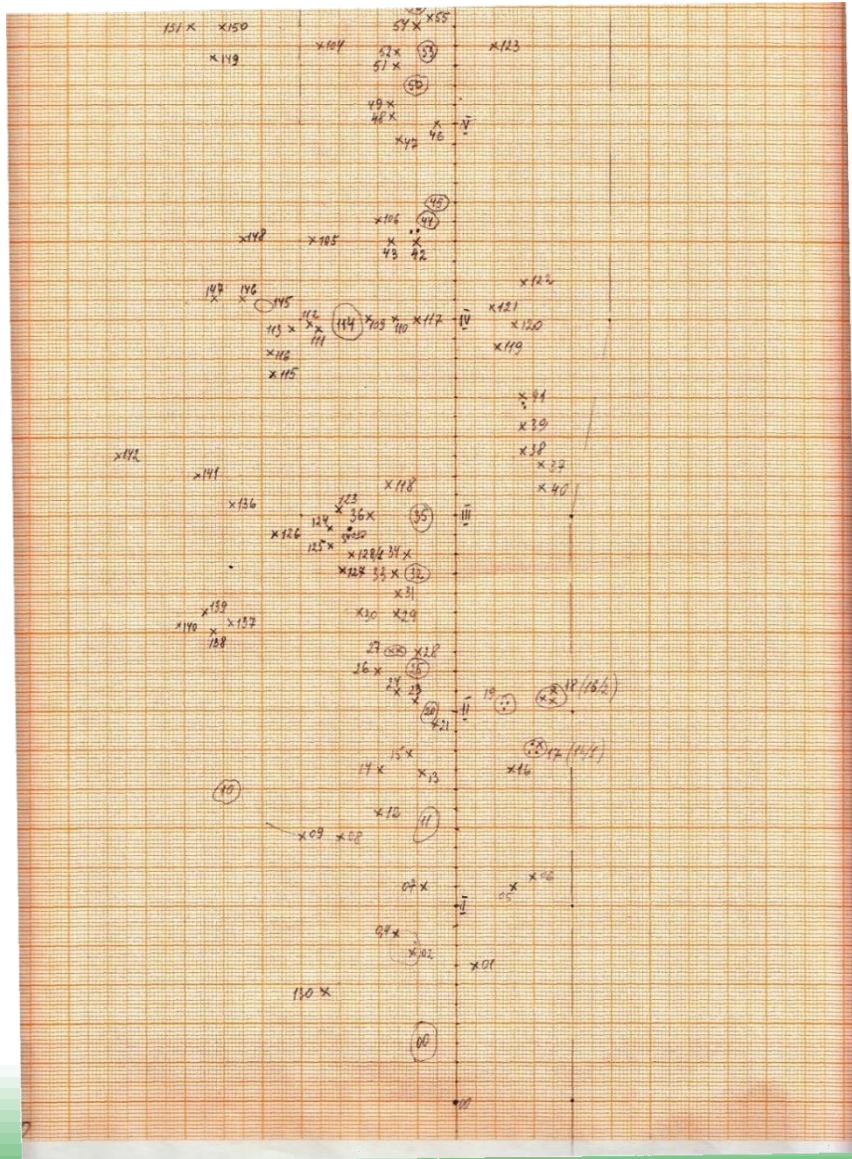 54 55
151 150
104 52 53 123
149 51
50
49
48 V
46
47
45
106 44
148 105
43 42
122
147 146
145 121
112 114 109 110 117 IV 120
113 111
119
116
115
41
39
38
142 37
141 118 40
136 123
36 35 III
124
126
125 128/2 34
127 33 32
31
139 30 29
140 137
138 27 28
26
24 23 19 18 (16/2)
20 II
21
15 17 (16/1)
14 13 16
10
12 11
09 08
06
07 05
I
04
02 01
130
00
00